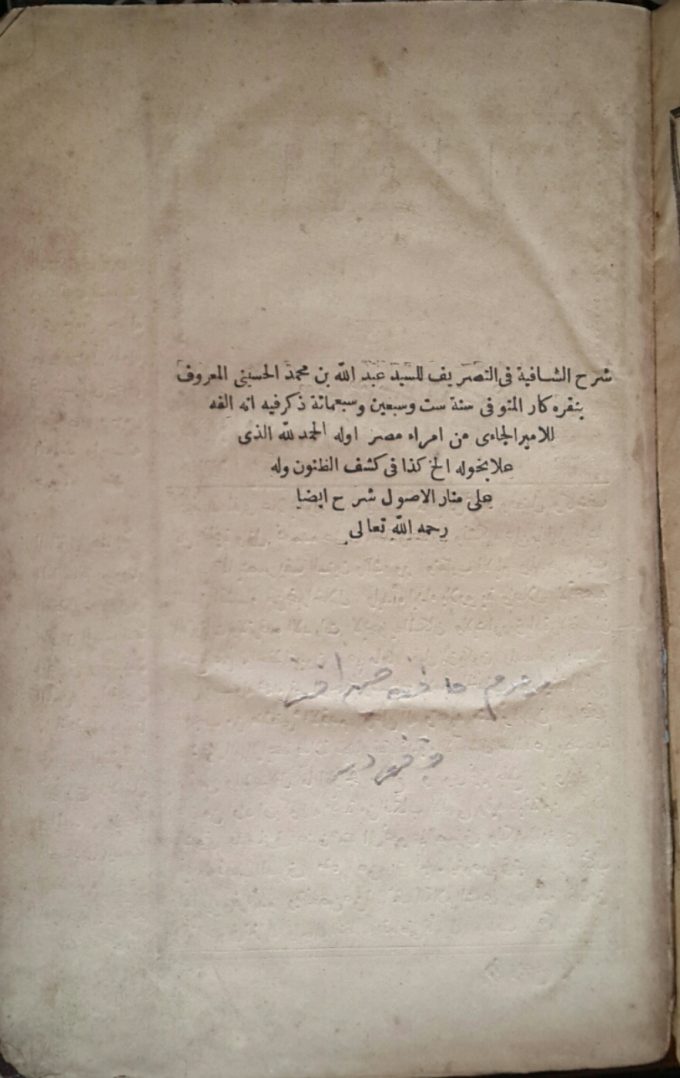 شرح الشافية فى التصريف للسيد عبد الله بن محمد الحسينى المعروف
بنقره كار المتوفى سنة ست وسبعين وسبعمائة ذكر فيه انه الفه
للامير الجاءى من امراء مصر اوله الحمد لله الذى
علا بحوله الخ كذا فى كشف الظنون وله
على منار الاصول شرح ايضا
رحمه الله تعالى